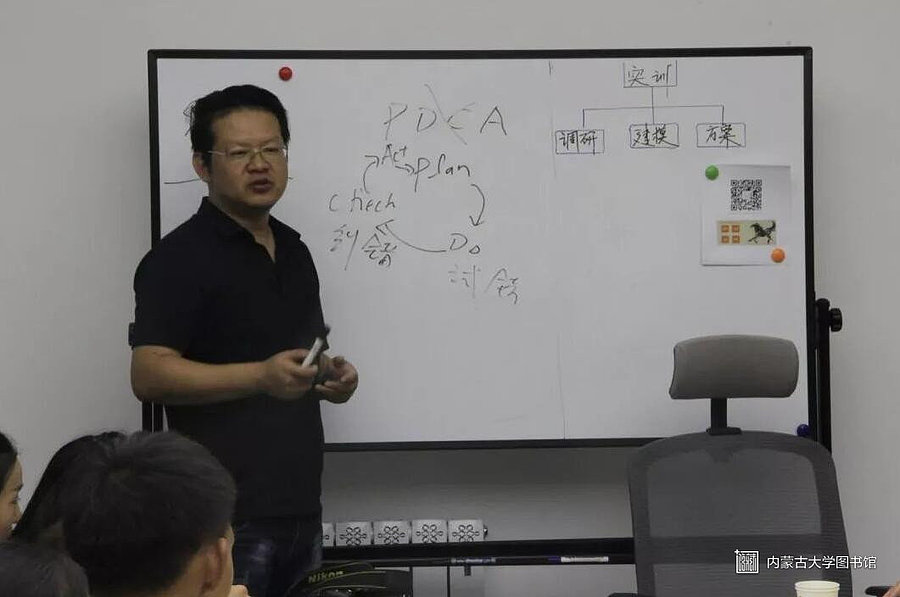 实训
PDCA
调研 建模 方案
Act
Plan
Chech
Do
纠错
试错
Nikon
内蒙古大学图书馆